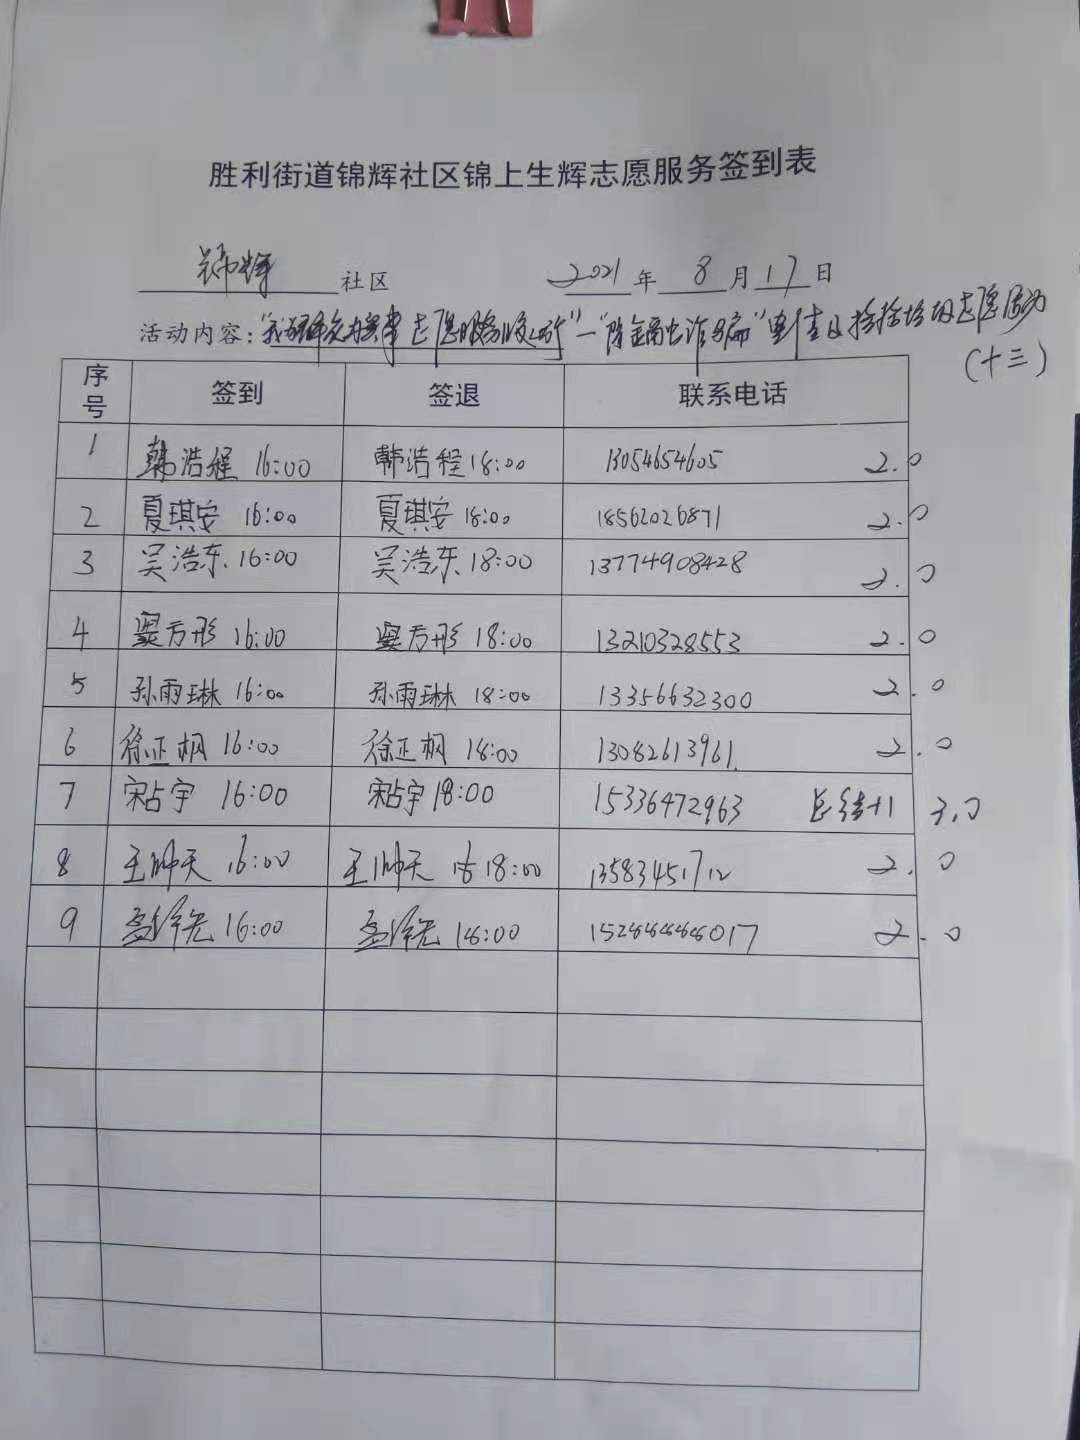 胜利街道锦辉社区锦上生辉志愿服务签到表
锦辉 社区 2021 年 8 月 17 日
活动内容:"我为群众办实事 志愿服务 " 一 "除 诈骗" 捡拾垃圾志愿活动
(十三)
序号 签到 签退 联系电话
1 韩浩程 16:00 韩浩程 18:00 13054654605 2.0
2 夏琪安 16:00 夏琪安 18:00 18562026871 2.0
3 吴浩东 16:00 吴浩东 18:00 13774908428 2.0
4 方彤 16:00 方彤 18:00 13210328553 2.0
5 孙雨琳 16:00 孙雨琳 18:00 13356632300 2.0
6 徐正枫 16:00 徐正枫 18:00 13082613961 2.0
7 宋占宇 16:00 宋占宇 18:00 15336472963 总结+1 3.0
8 王帅天 16:00 王帅天 18:00 13583451712 2.0
9 孟泽宏 16:00 孟泽宏 18:00 15288888017 2.0